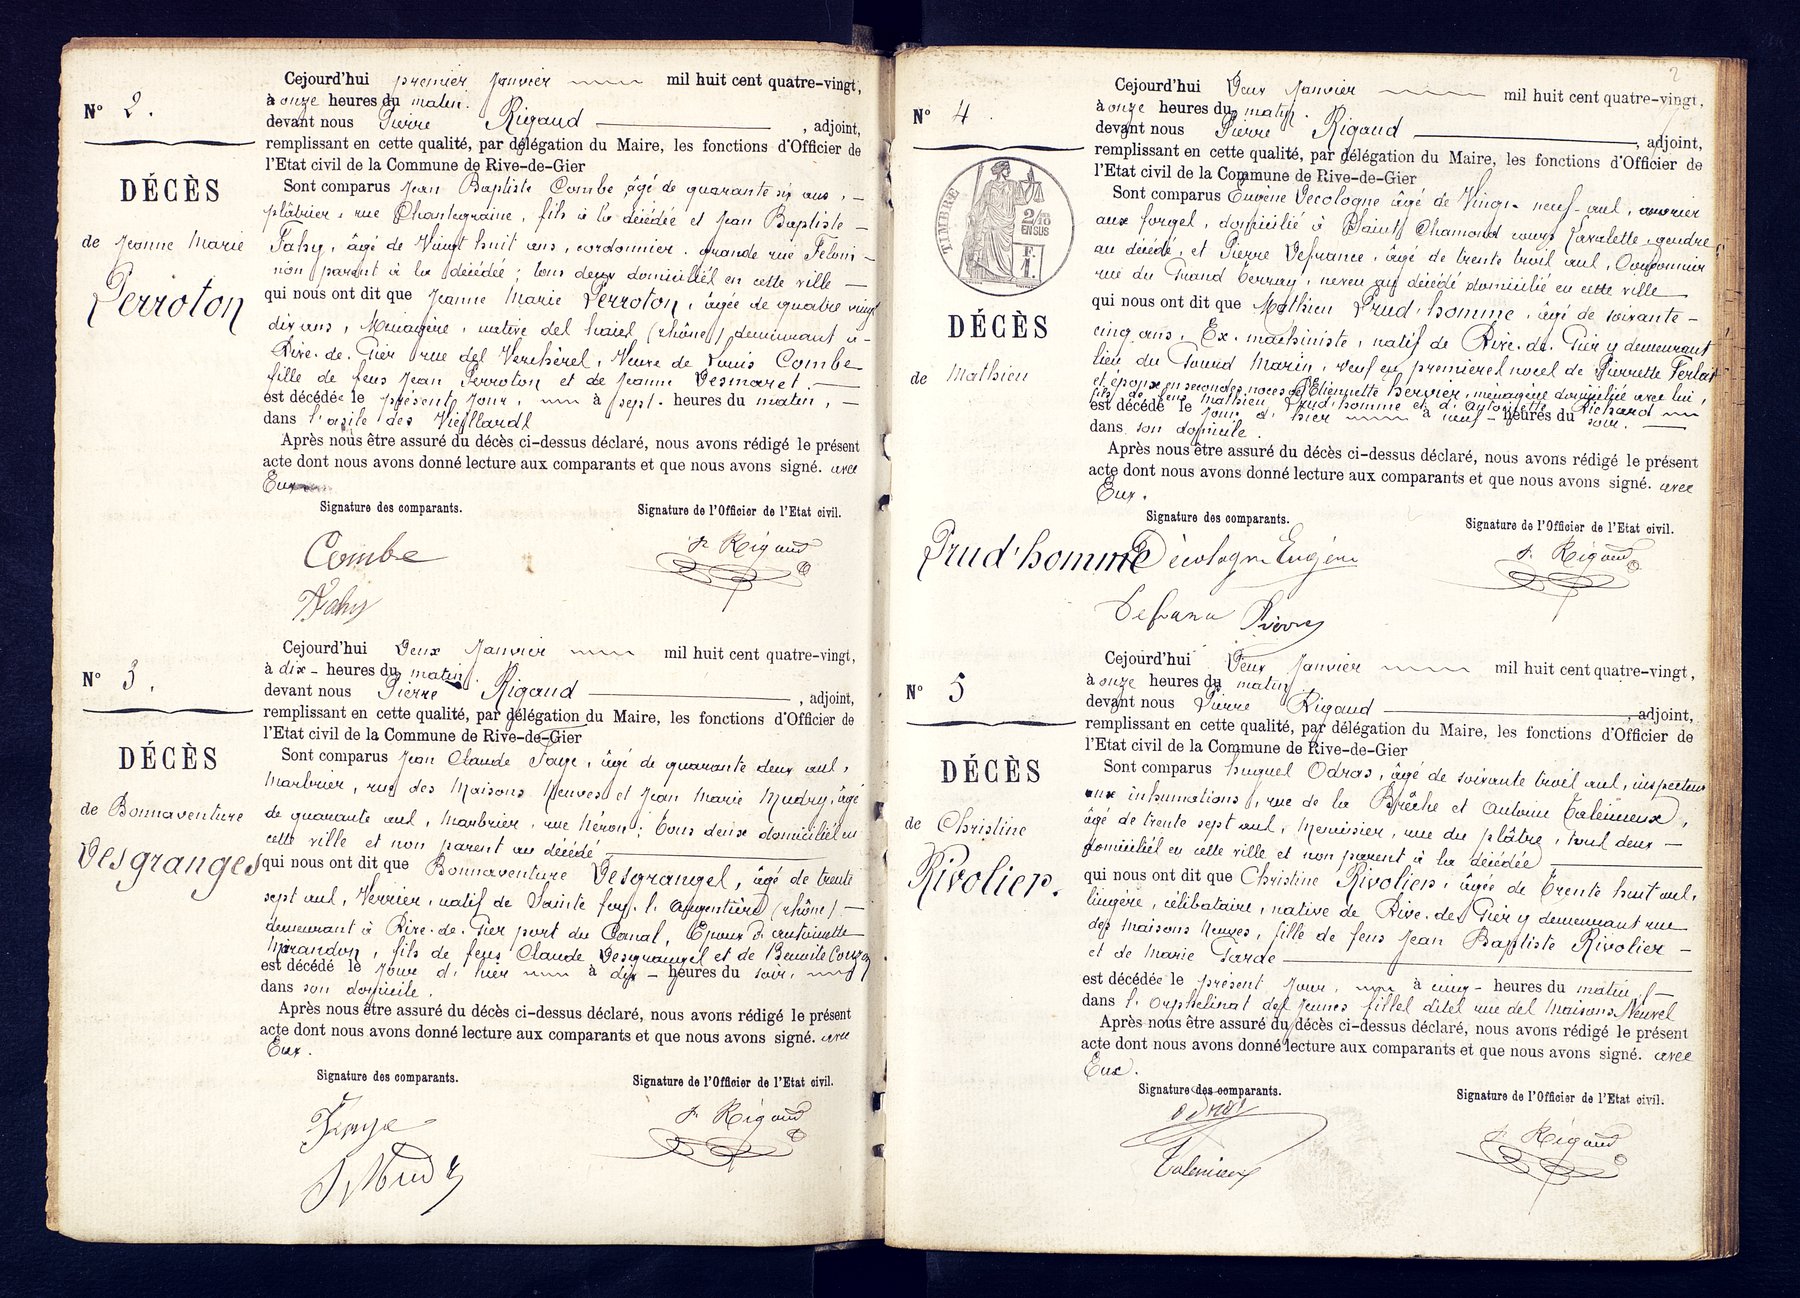 N° 2.
DÉCÈS
de Jeanne Marie
Perroton
Cejourd'hui premier Janvier mil huit cent quatre-vingt,
à onze heures du matin.
devant nous Pierre Rigaud , adjoint,
remplissant en cette qualité, par délégation du Maire, les fonctions d'Officier de
l'Etat civil de la Commune de Rive-de-Gier
Sont comparus Jean Baptiste Combe, âgé de quarante six ans,
plâtrier, rue Chantegraine, fils à la décédée et Jean Baptiste
Fahy, âgé de Vingt huit ans, cordonnier, grande rue Féloin
non parent à la décédée; tous deux domiciliés en cette ville
qui nous ont dit que Jeanne Marie Perroton, âgée de quatre vingt
dix ans, Ménagère, native des haies (rhône) demeurant à
Rive-de-Gier rue des Verchères, Veuve de Louis Combe
fille de feus Jean Perroton et de Jeanne Desmaret.
est décédée le présent jour, à sept heures du matin,
dans l'asile des Vieillards
Après nous être assuré du décès ci-dessus déclaré, nous avons rédigé le présent
acte dont nous avons donné lecture aux comparants et que nous avons signé. avec
Eux
Signature des comparants. Signature de l'Officier de l'Etat civil.
Combe P. Rigaud
Fahy
N° 3.
DÉCÈS
de Bonnaventure
Desgranges
Cejourd'hui Deux Janvier mil huit cent quatre-vingt,
à dix heures du matin.
devant nous Pierre Rigaud , adjoint,
remplissant en cette qualité, par délégation du Maire, les fonctions d'Officier de
l'Etat civil de la Commune de Rive-de-Gier
Sont comparus Jean Claude Faye, âgé de quarante deux ans,
Marbrier, rue des Maisons Neuves et Jean Marie Mudry, âgé
de quarante ans, Marbrier, rue Néron; tous deux domiciliés en
cette ville et non parent au décédé
qui nous ont dit que Bonnaventure Desgranges, âgé de trente
sept ans, Verrier, natif de Sainte foy-l'Argentière (rhône)
demeurant à Rive-de-Gier port du Canal, Epoux d'antoinette
Mirandon, fils de feus Claude Desgranges et de Benoite Couzon
est décédé le Jour d'hier à dix heures du soir,
dans son domicile.
Après nous être assuré du décès ci-dessus déclaré, nous avons rédigé le présent
acte dont nous avons donné lecture aux comparants et que nous avons signé. avec
Eux.
Signature des comparants. Signature de l'Officier de l'Etat civil.
Faye P. Rigaud
Mudry
2
N° 4.
TIMBRE
2/10 EN SUS
F. 1.
DÉCÈS
de Mathieu
Prud'homme
Cejourd'hui Deux Janvier mil huit cent quatre-vingt,
à onze heures du matin.
devant nous Pierre Rigaud , adjoint,
remplissant en cette qualité, par délégation du Maire, les fonctions d'Officier de
l'Etat civil de la Commune de Rive-de-Gier
Sont comparus Eugène Décologne âgé de Vingt-neuf ans, ouvrier
aux forges, domicilié à Saint Chamond cours Lavalette, gendre
au décédé, et Pierre Defrance, âgé de trente trois ans, Cordonnier
rue du Grand Terray, neveu au décédé domicilié en cette ville
qui nous ont dit que Mathieu Prud'homme, âgé de soixante-
cinq ans, Ex. machiniste, natif de Rive-de-Gier y demeurant
lieu du Gourd Marin, veuf en premières noces de Pierrette Ferlat
et époux en secondes noces d'Etiennette hervier, ménagère domiciliée avec lui,
fils de feus Mathieu Prud'homme et d'Antoinette Richard
est décédé le Jour d'hier à neuf heures du soir.
dans son domicile.
Après nous être assuré du décès ci-dessus déclaré, nous avons rédigé le présent
acte dont nous avons donné lecture aux comparants et que nous avons signé. avec
Eux.
Signature des comparants. Signature de l'Officier de l'Etat civil.
Décologne Eugène P. Rigaud
Defrance Pierre
N° 5
DÉCÈS
de Christine
Rivolier.
Cejourd'hui Deux Janvier mil huit cent quatre-vingt,
à onze heures du matin
devant nous Pierre Rigaud , adjoint,
remplissant en cette qualité, par délégation du Maire, les fonctions d'Officier de
l'Etat civil de la Commune de Rive-de-Gier
Sont comparus hugues Odras, âgé de soixante trois ans, inspecteur
aux inhumations, rue de la Brêche et AntoineТалémieux,
âgé de trente sept ans, Menuisier, rue du plâtre, tous deux
domiciliés en cette ville et non parent à la décédée
qui nous ont dit que Christine Rivolier, âgée de trente huit ans,
lingère, célibataire, native de Rive-de-Gier y demeurant rue
des Maisons Neuves, fille de feus Jean Baptiste Rivolier
et de Marie Farde
est décédée le présent Jour, à cinq heures du matin,
dans l'Orphelinat des Jeunes filles dites rue des Maisons Neuves
Après nous être assuré du décès ci-dessus déclaré, nous avons rédigé le présent
acte dont nous avons donné lecture aux comparants et que nous avons signé. avec
Eux.
Signature des comparants. Signature de l'Officier de l'Etat civil.
Odras P. Rigaud